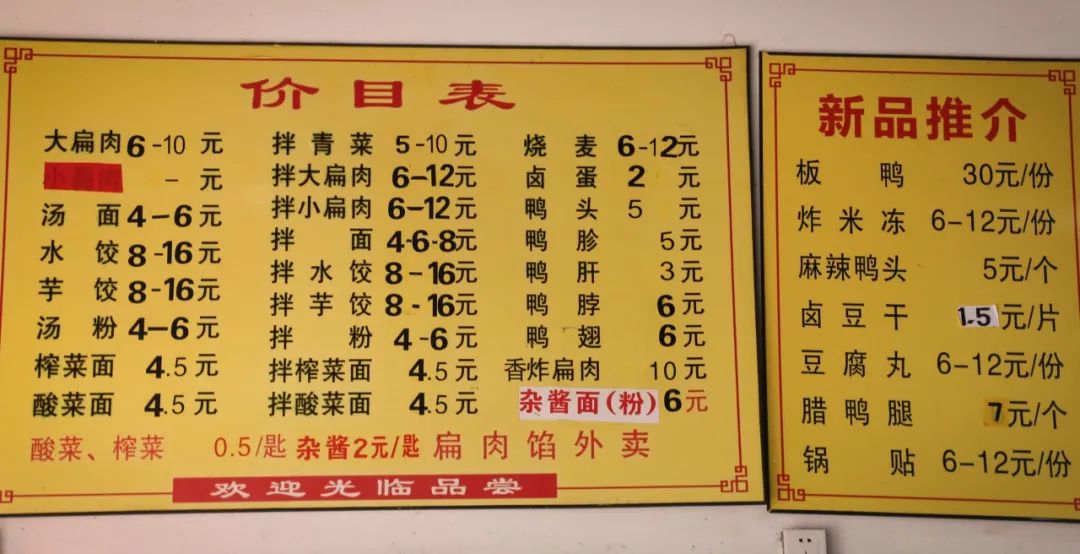 价目表
大扁肉 6-10 元
- 元
汤面 4-6元
水饺 8-16元
芋饺 8-16元
汤粉 4-6元
榨菜面 4.5元
酸菜面 4.5元
拌青菜 5-10元
拌大扁肉 6-12元
拌小扁肉 6-12元
拌面 4·6·8元
拌水饺 8-16元
拌芋饺 8-16元
拌粉 4-6元
拌榨菜面 4.5元
拌酸菜面 4.5元
烧麦 6-12元
卤蛋 2 元
鸭头 5 元
鸭胗 5元
鸭肝 3元
鸭脖 6元
鸭翅 6元
香炸扁肉 10元
杂酱面(粉) 6元
酸菜、榨菜 0.5/匙 杂酱2元/匙 扁肉馅外卖
欢迎光临品尝
新品推介
板鸭 30元/份
炸米冻 6-12元/份
麻辣鸭头 5元/个
卤豆干 1.5元/片
豆腐丸 6-12元/份
腊鸭腿 7元/个
锅贴 6-12元/份